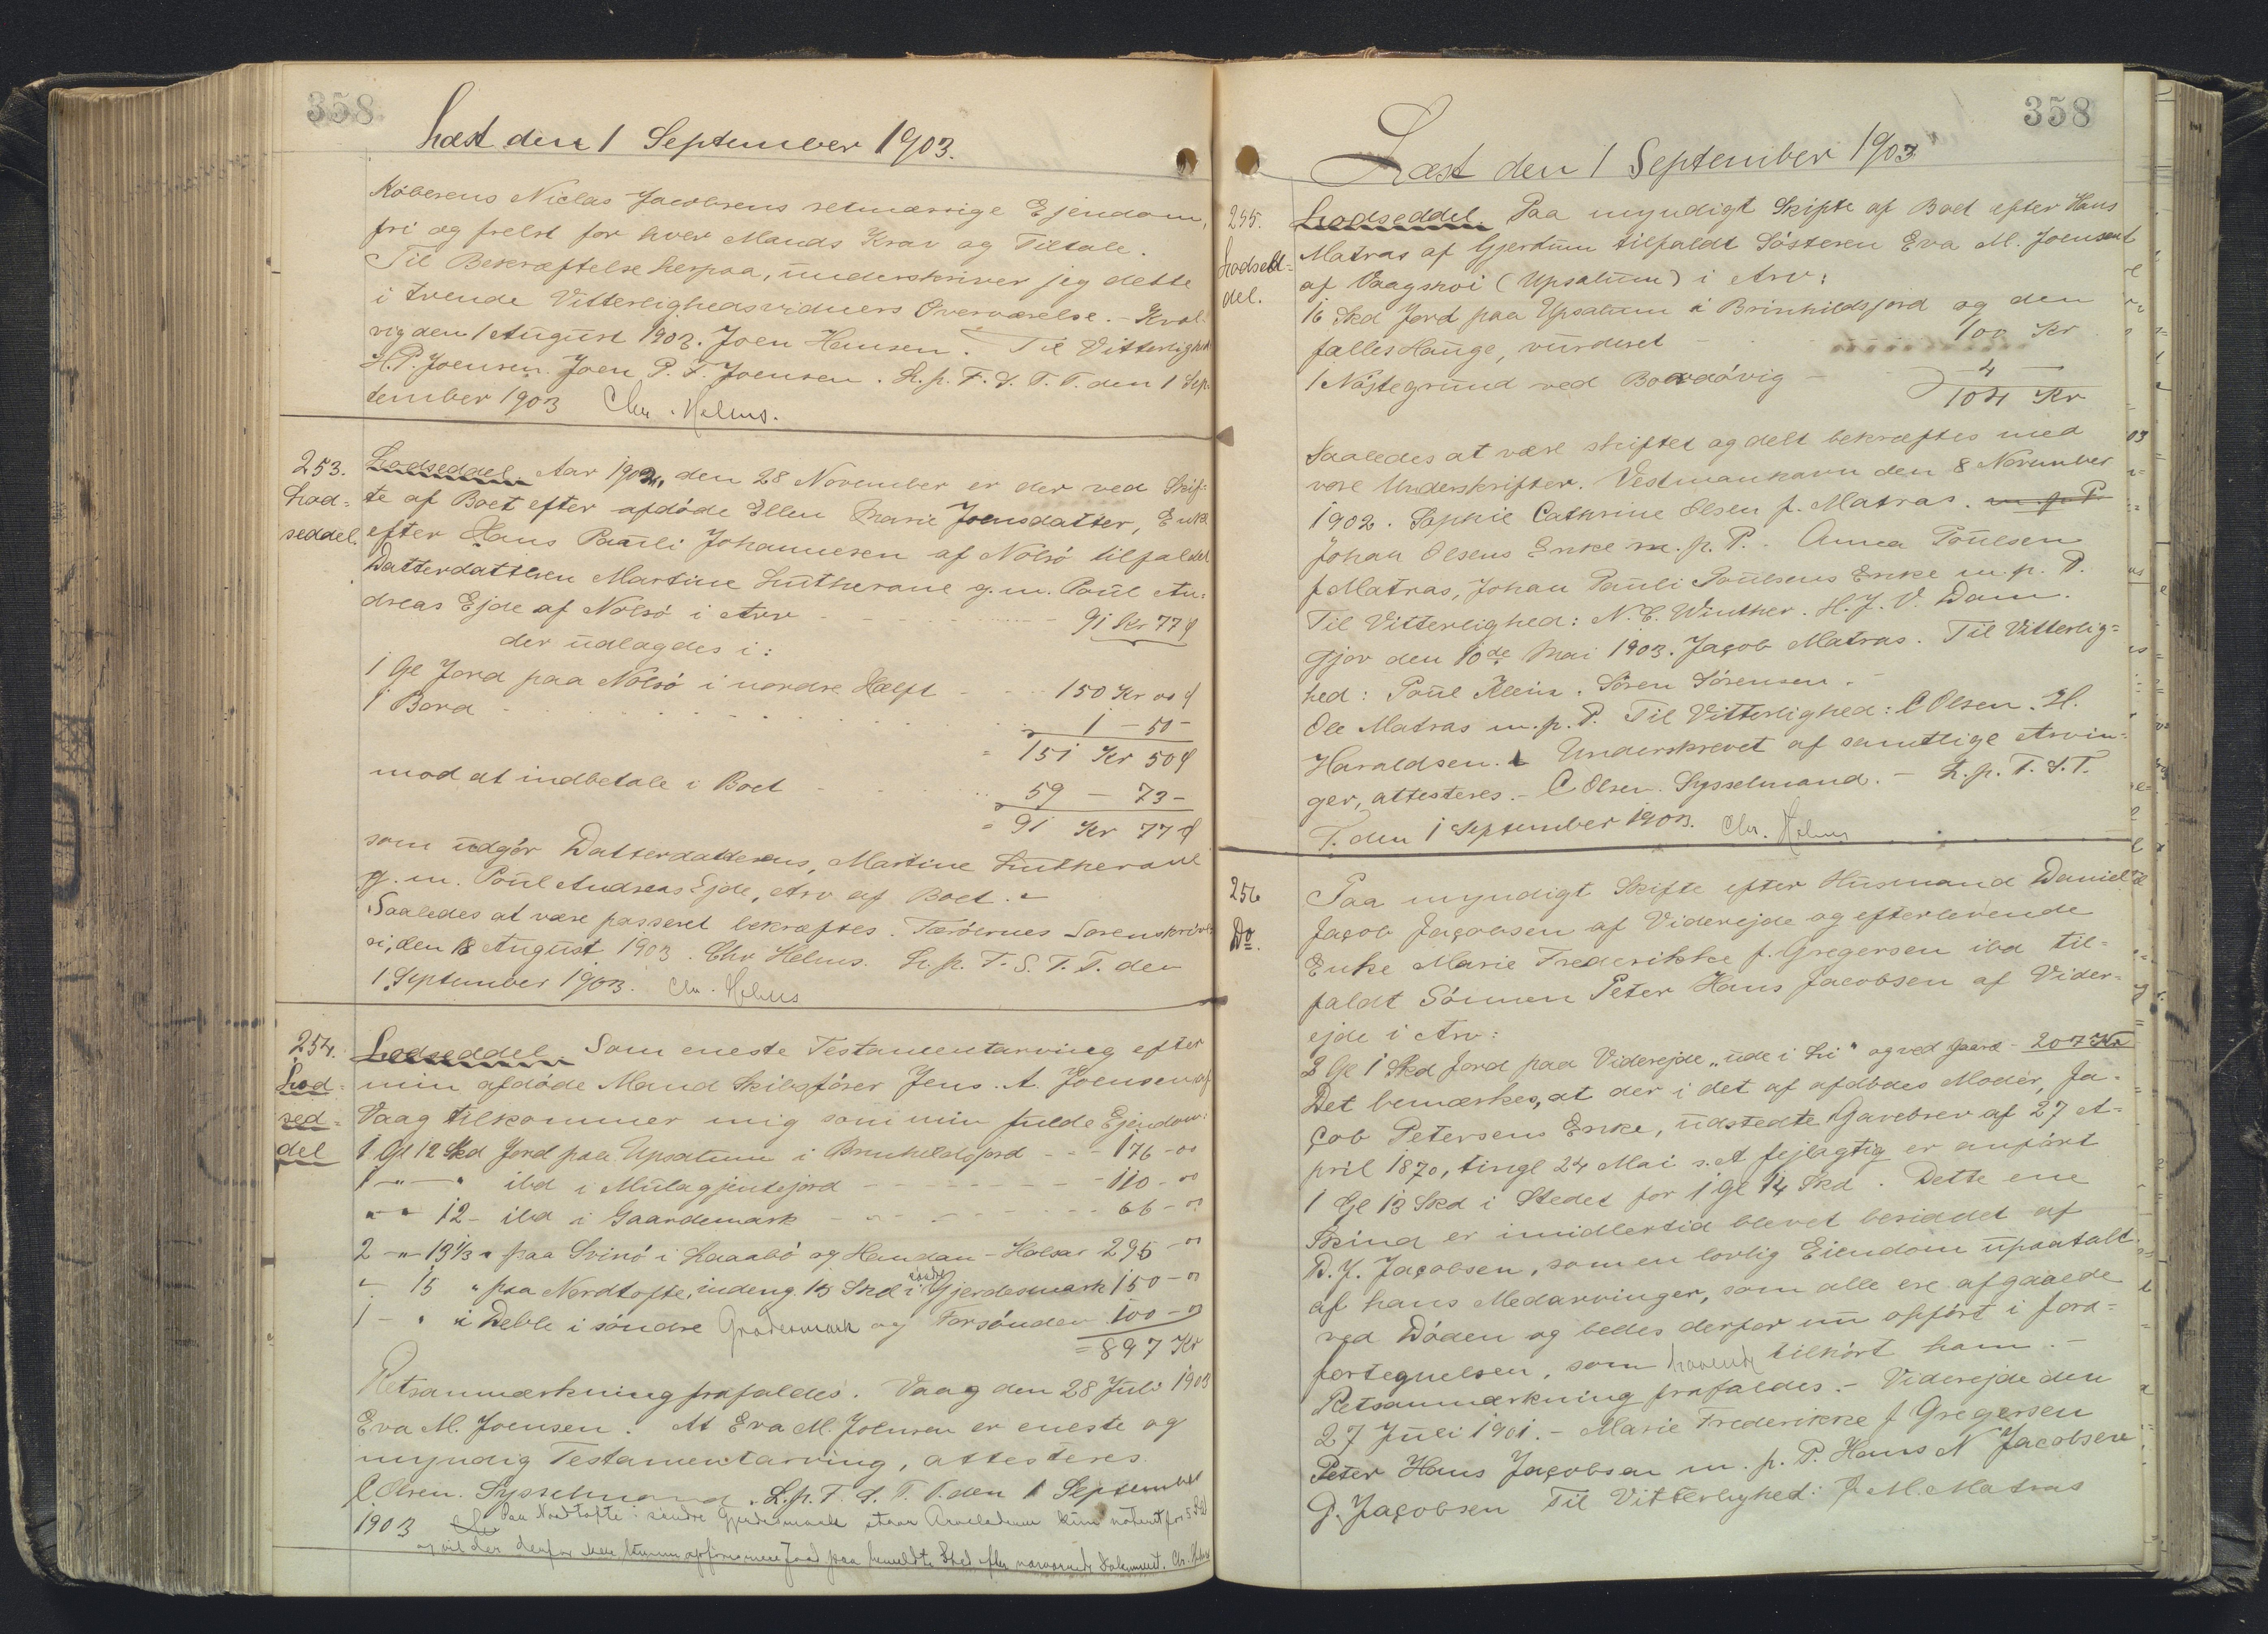 358
Læst den 1 September 1903.
Køberens Niclas Jacobsens retmæssige Ejendom,
fri og frelst for hver Mands Krav og Tiltale.
Til Bekræftelse herpaa, underskriver jeg dette
i tvende Vitterlighedsvidners Overværelse. - Kval-
vig den 1 August 1903. Joen Hansen. Til Vitterlighed
H. P. Joensen. Joen P. F. Joensen. L. p. F. S. T. T. den 1 Sep-
tember 1903 Chr. Helms.
253.
Lod=
seddel.
Lodseddel. Aar 1902, den 28 November er der ved Skif-
te af Boet efter afdøde Ellen Marie Joensdatter, Enke
efter Hans Pauli Johannesen af Nolsø tilfaldet
Datterdatteren Martine Lutherane g. m. Poul An-
dreas Ejde af Nolsø i Arv - - - 91 Kr 77 ø
der udlagdes i:
1 Gl Jord paa Nolsø i nordre Hælft - - 150 Kr 00 ø
1 Bord - - - 1 - 50 -
= 151 Kr 50 ø
mod at indbetale i Boet - - 59 - 73 -
= 91 Kr 77 ø
som udgør Datterdatterens, Martine Lutherane
g. m. Poul Andreas Ejde, Arv af Boet. -
Saaledes at være passeret bekræftes. Færøernes Sorenskrive-
ri, den 18 August 1903. Chr Helms. L. p. F. S. T. T. den
1 September 1903. Chr. Helms
254.
Lod=
sed=
del
Lodseddel. Som eneste Testamentarving efter
min afdøde Mand Skibsfører Jens. A. Joensen af
Vaag tilkommer mig som min fulde Ejendom:
1 Gl 12 Skd Jord paa Upsatum i Brinhildsfjord - - - 176 - 00
1 - " - " ibd i Mulagjentejord - - - 110 - 00
" - " 12 - ibd i Gaardemark - - - 66 - 00
2 - " - 13 1/3 " paa Svinø i Laaabø og Handan - Halsar 295 - 00
" 15 " paa Nordtofte, indeng 15 Skd i søndre Gjerdesmark 150 - 00
1 - " i Deble i søndre Grødesmark og Forsønden 100 - 00
= 897 Kr
Retsanmærkning frafaldes. Vaag den 28 Juli 1903
Eva M. Joensen. At Eva M. Joensen er eneste og
myndig Testamentarving, attesteres.
C Olsen. Sysselmand. L. p. F. S. T. T. den 1 September
1903 Paa Nordtofte i søndre Gjerdesmark staar Arveladeren kun noteret for 5 Skd
og vil der derfor ikke kunne opføres mere Jord paa bemeldte Sted efter nærværende Dokument. Chr. Helms
358
Læst den 1 September 1903
255.
Lodsed=
del.
Lodseddel. Paa myndigt Skifte af Boet efter Hans
Matras af Gjerdum tilfaldt Søsteren Eva M. Joensen
af Vaagshoi (Upsatum) i Arv:
16 Skd Jord paa Upsatum i Brinhildsfjord og den
fælles Hauge, vurderet - 100 Kr
1 Nøjstegrund ved Bordøvig - 4 -
104 Kr
Saaledes at være skiftet og delt bekræftes med
vore Underskrifter. Vestmanhavn den 8 November
1902. Sophie Cathrine Olsen f. Matras. m. p. P.
Johan Olsens Enke m. p. P. Anna Poulsen
f Matras, Johan Pauli Poulsens Enke m. p. P.
Til Vitterlighed: N. C. Winther. H. J. V. Dam.
Gjov den 10de Mai 1903. Jacob Matras. Til Vitterlig=
hed: Poul Klein. Søren Sørensen. -
Ole Matras m. p. P. Til Vitterlighed: C Olsen. H.
Haraldsen. Underskrevet af samtlige Arvin-
ger, attesteres. - C Olsen. Sysselmand. - L. p. F. S. T.
T. den 1 September 1903. Chr. Helms
256
Do.
Paa myndigt Skifte efter Husmand Daniel
Jacob Jacobsen af Viderejde og efterlevende
Enke Marie Frederikke f. Gregersen ibd til-
faldt Sønnen Peter Hans Jacobsen af Vider-
ejde i Arv:
3 Gl 1 Skd Jord paa Viderejde "ude i Li" og ved Gaard - 207 Kr
Det bemærkes, at der i det af afdødes Moder, Ja-
cob Petersens Enke, udstedte Gavebrev af 27 A-
pril 1870, tingl 24 Mai s. A fejlagtig er anført
1 Gl 13 Skd i Stedet for 1 Gl 14 Skd. Dette ene
Skind er imidlertid blevet besiddet af
D. J. Jacobsen, som en lovlig Eiendom upaatalt
af hans Medarvinger, som alle ere afgaaede
ved Døden og bedes derfor nu opført i Jord-
fortegnelsen, som havende tilhørt ham. -
Retsanmærkning frafaldes. - Viderejde den
27 Juli 1901. - Marie Frederikke f Gregersen
Peter Hans Jacobsen m. p. P. Hans N Jacobsen
G. Jacobsen Til Vitterlighed: J. M. Matras